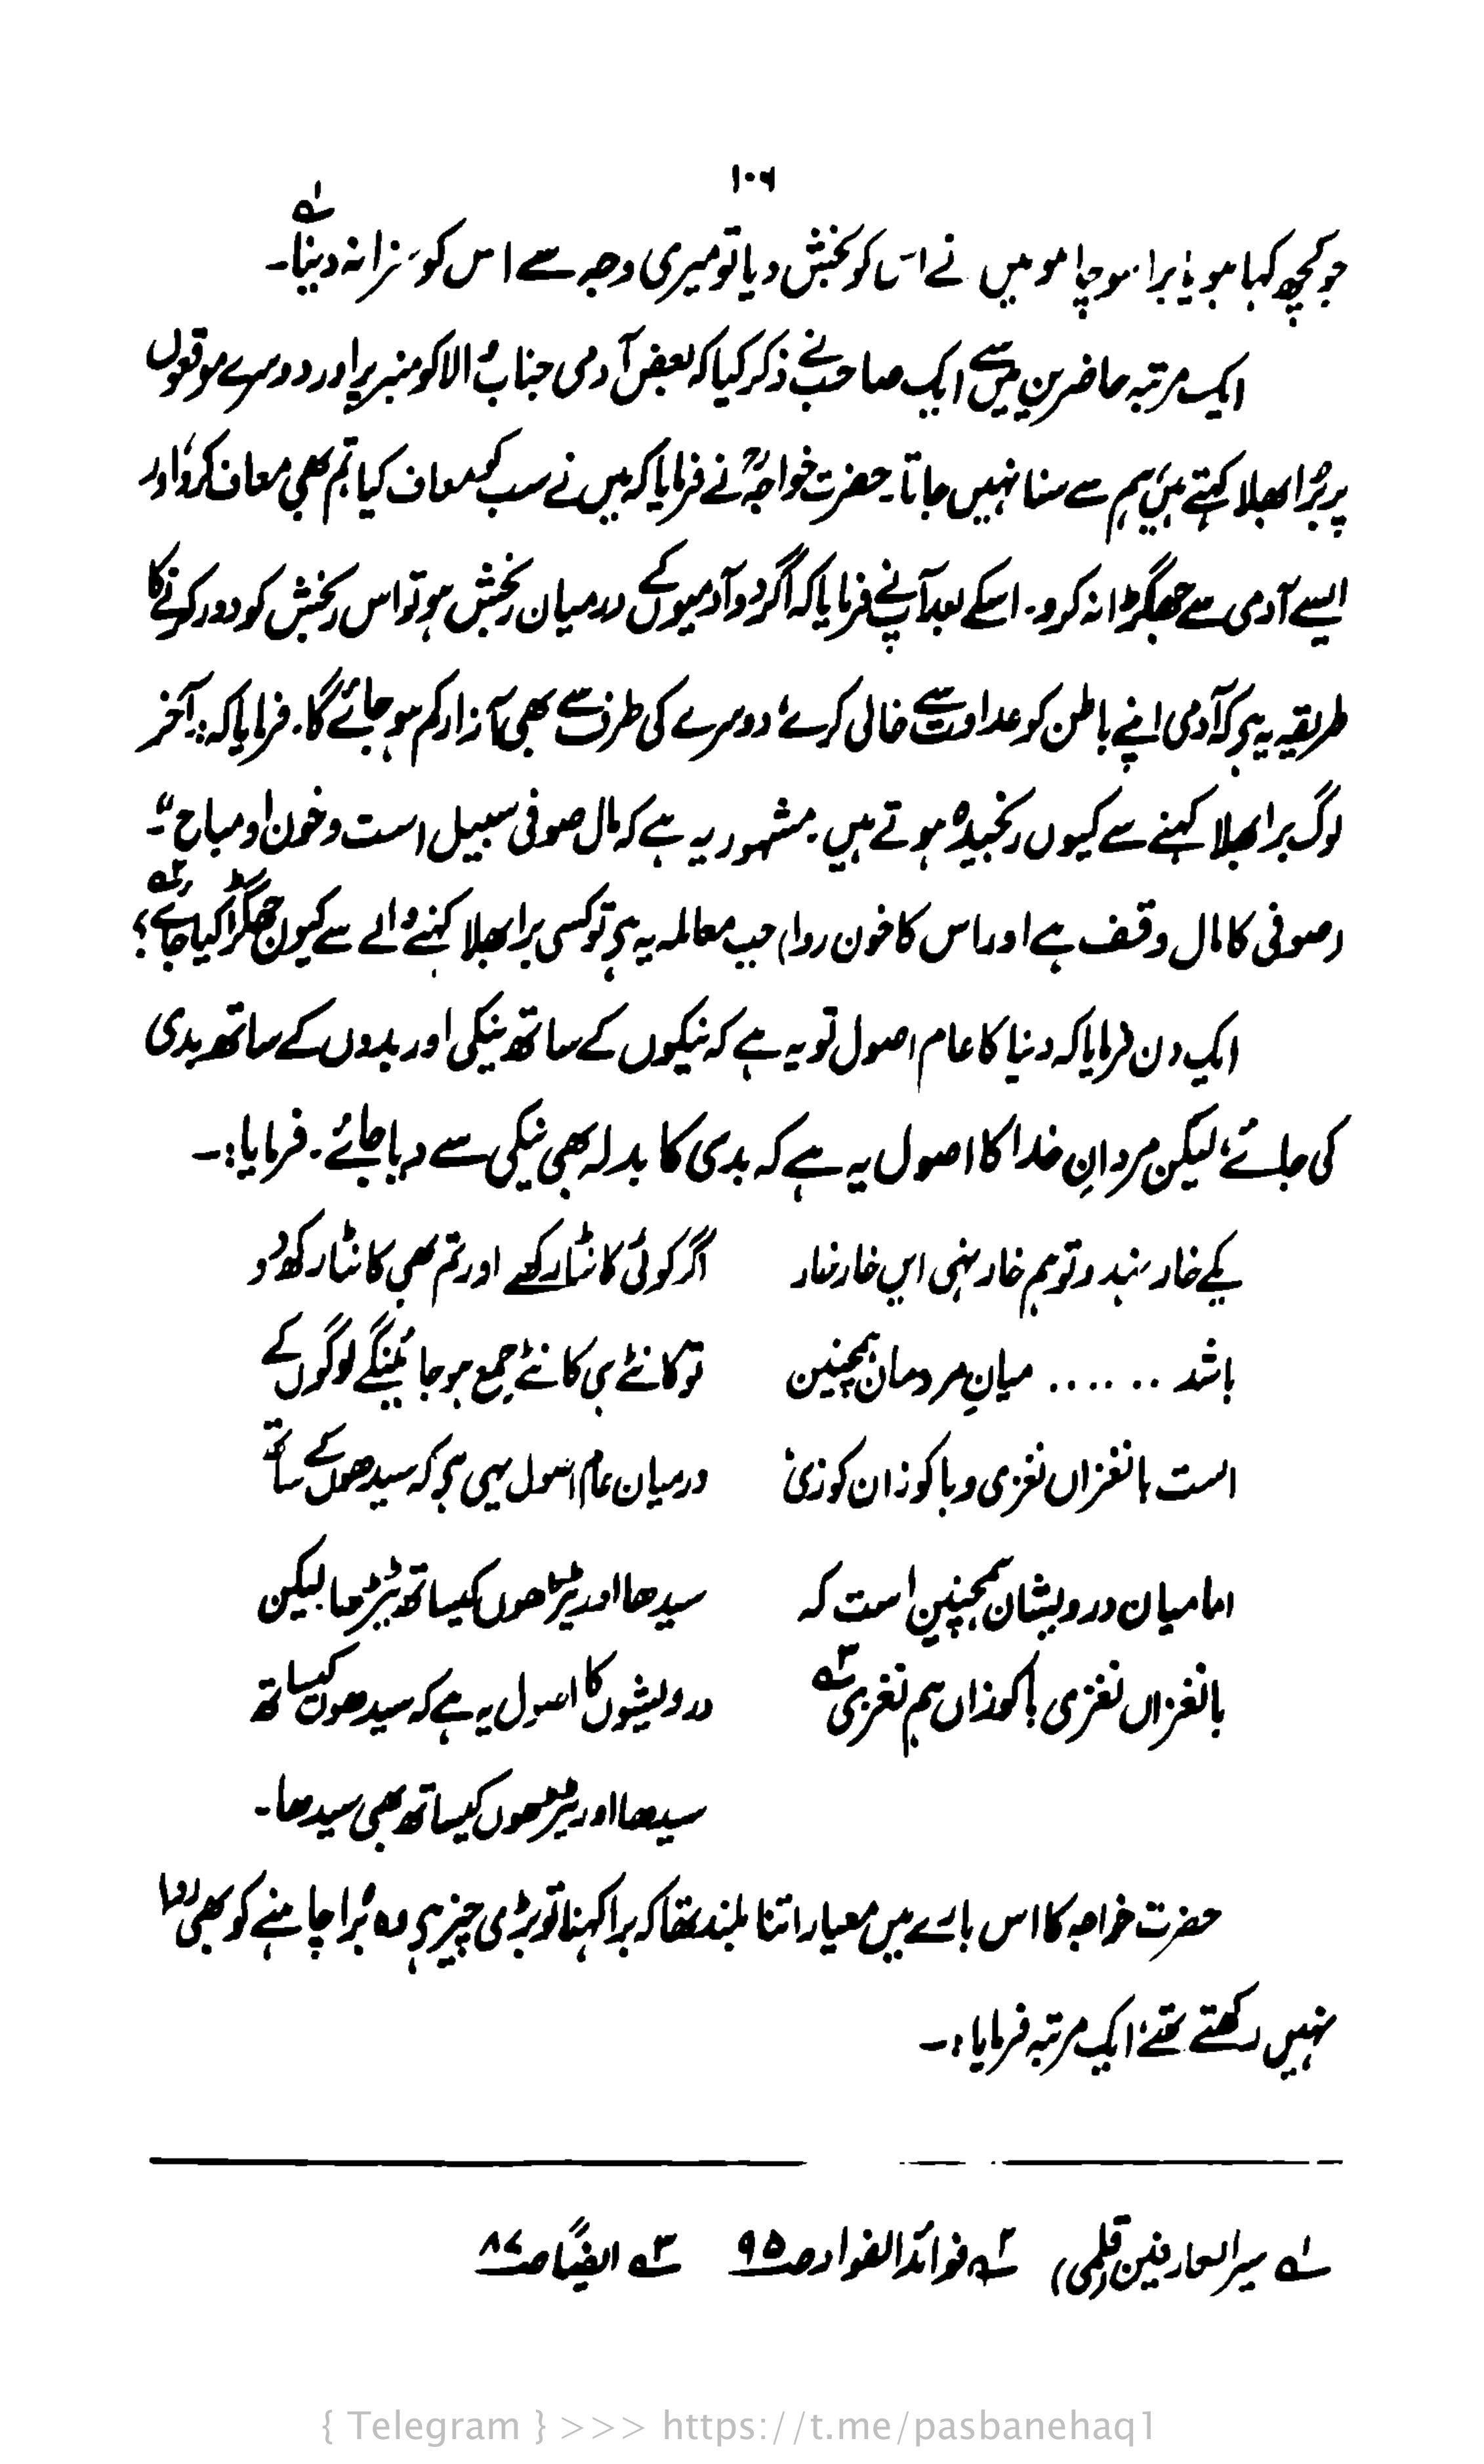 ۱۰۶
جو کچھ کہا ہو یا برا سوچا ہو میں نے اس کو بخش دیا تو میری وجہ سے اس کو سزا نہ دینا۔ ۱ے
ایک مرتبہ حاضرین میں سے ایک صاحب نے ذکر کیا کہ بعض آدمی جناب والا کو منبر پر اور دوسرے موقعوں
پر برا بھلا کہتے ہیں، ہم سے سنا نہیں جاتا۔ حضرت خواجہؒ نے فرمایا کہ میں نے سب کو معاف کیا، تم بھی معاف کردو اور
ایسے آدمی سے جھگڑا نہ کرو۔ اسکے بعد آپ نے فرمایا کہ اگر دو آدمیوں کے درمیان رنجش ہو تو اس رنجش کو دور کرنے کا
طریقہ یہ ہے کہ آدمی اپنے باطن کو عداوت سے خالی کرے، دوسرے کی طرف سے بھی آزار کم ہو جائے گا۔ فرمایا کہ: آخر
لوگ برا بھلا کہنے سے کیوں رنجیدہ ہوتے ہیں۔ مشہور یہ ہے کہ مال صوفی سبیل است و خون او مباح"۔
(صوفی کا مال وقف ہے اور اس کا خون روا) جب معاملہ یہ ہے تو کسی برا بھلا کہنے والے سے کیوں جھگڑا کیا جائے؟ ۲ے
ایک دن فرمایا کہ دنیا کا عام اصول تو یہ ہے کہ نیکوں کے ساتھ نیکی اور بدوں کے ساتھ بدی
کی جائے، لیکن مردانِ خدا کا اصول یہ ہے کہ بدی کا بدلہ بھی نیکی سے دیا جائے۔ فرمایا:۔
یکے خار نہد و تو ہم خار نہی ایں خار خار
باشد ...... میانِ مردمان ہمچنین
است با نغزاں نغزی و با کوزان کوزی
اما میان درویشان ہمچنین است کہ
با نغزاں نغزی با کوزاں ہم نغزی ۳ے
اگر کوئی کانٹا رکھے اور تم بھی کانٹا رکھ دو
تو کانٹے ہی کانٹے جمع ہو جائینگے لوگوں کے
درمیان عام اصول یہی ہے کہ سیدھوں کے ساتھ
سیدھا اور ٹیڑھوں کیساتھ ٹیڑھا لیکن
درویشوں کا اصول یہ ہے کہ سیدھوں کیساتھ
سیدھا اور ٹیڑھوں کیساتھ بھی سیدھا۔
حضرت خواجہ کا اس بارے میں معیار اتنا بلند تھا کہ برا کہنا تو بڑی چیز ہے وہ برا چاہنے کو بھی روا
نہیں رکھتے تھے، ایک مرتبہ فرمایا:۔
۱ے سیر العارفین (قلمی) ۲ے فوائد الفواد صـ ۹۵ ۳ے ایضاً صـ ۸۷
{ Telegram } >>> https://t.me/pasbanehaq1